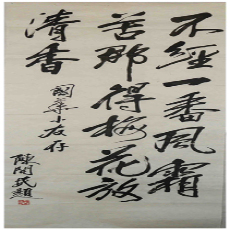 不經一番風霜
苦那得梅花放
清香
國業小友存
陳開民題